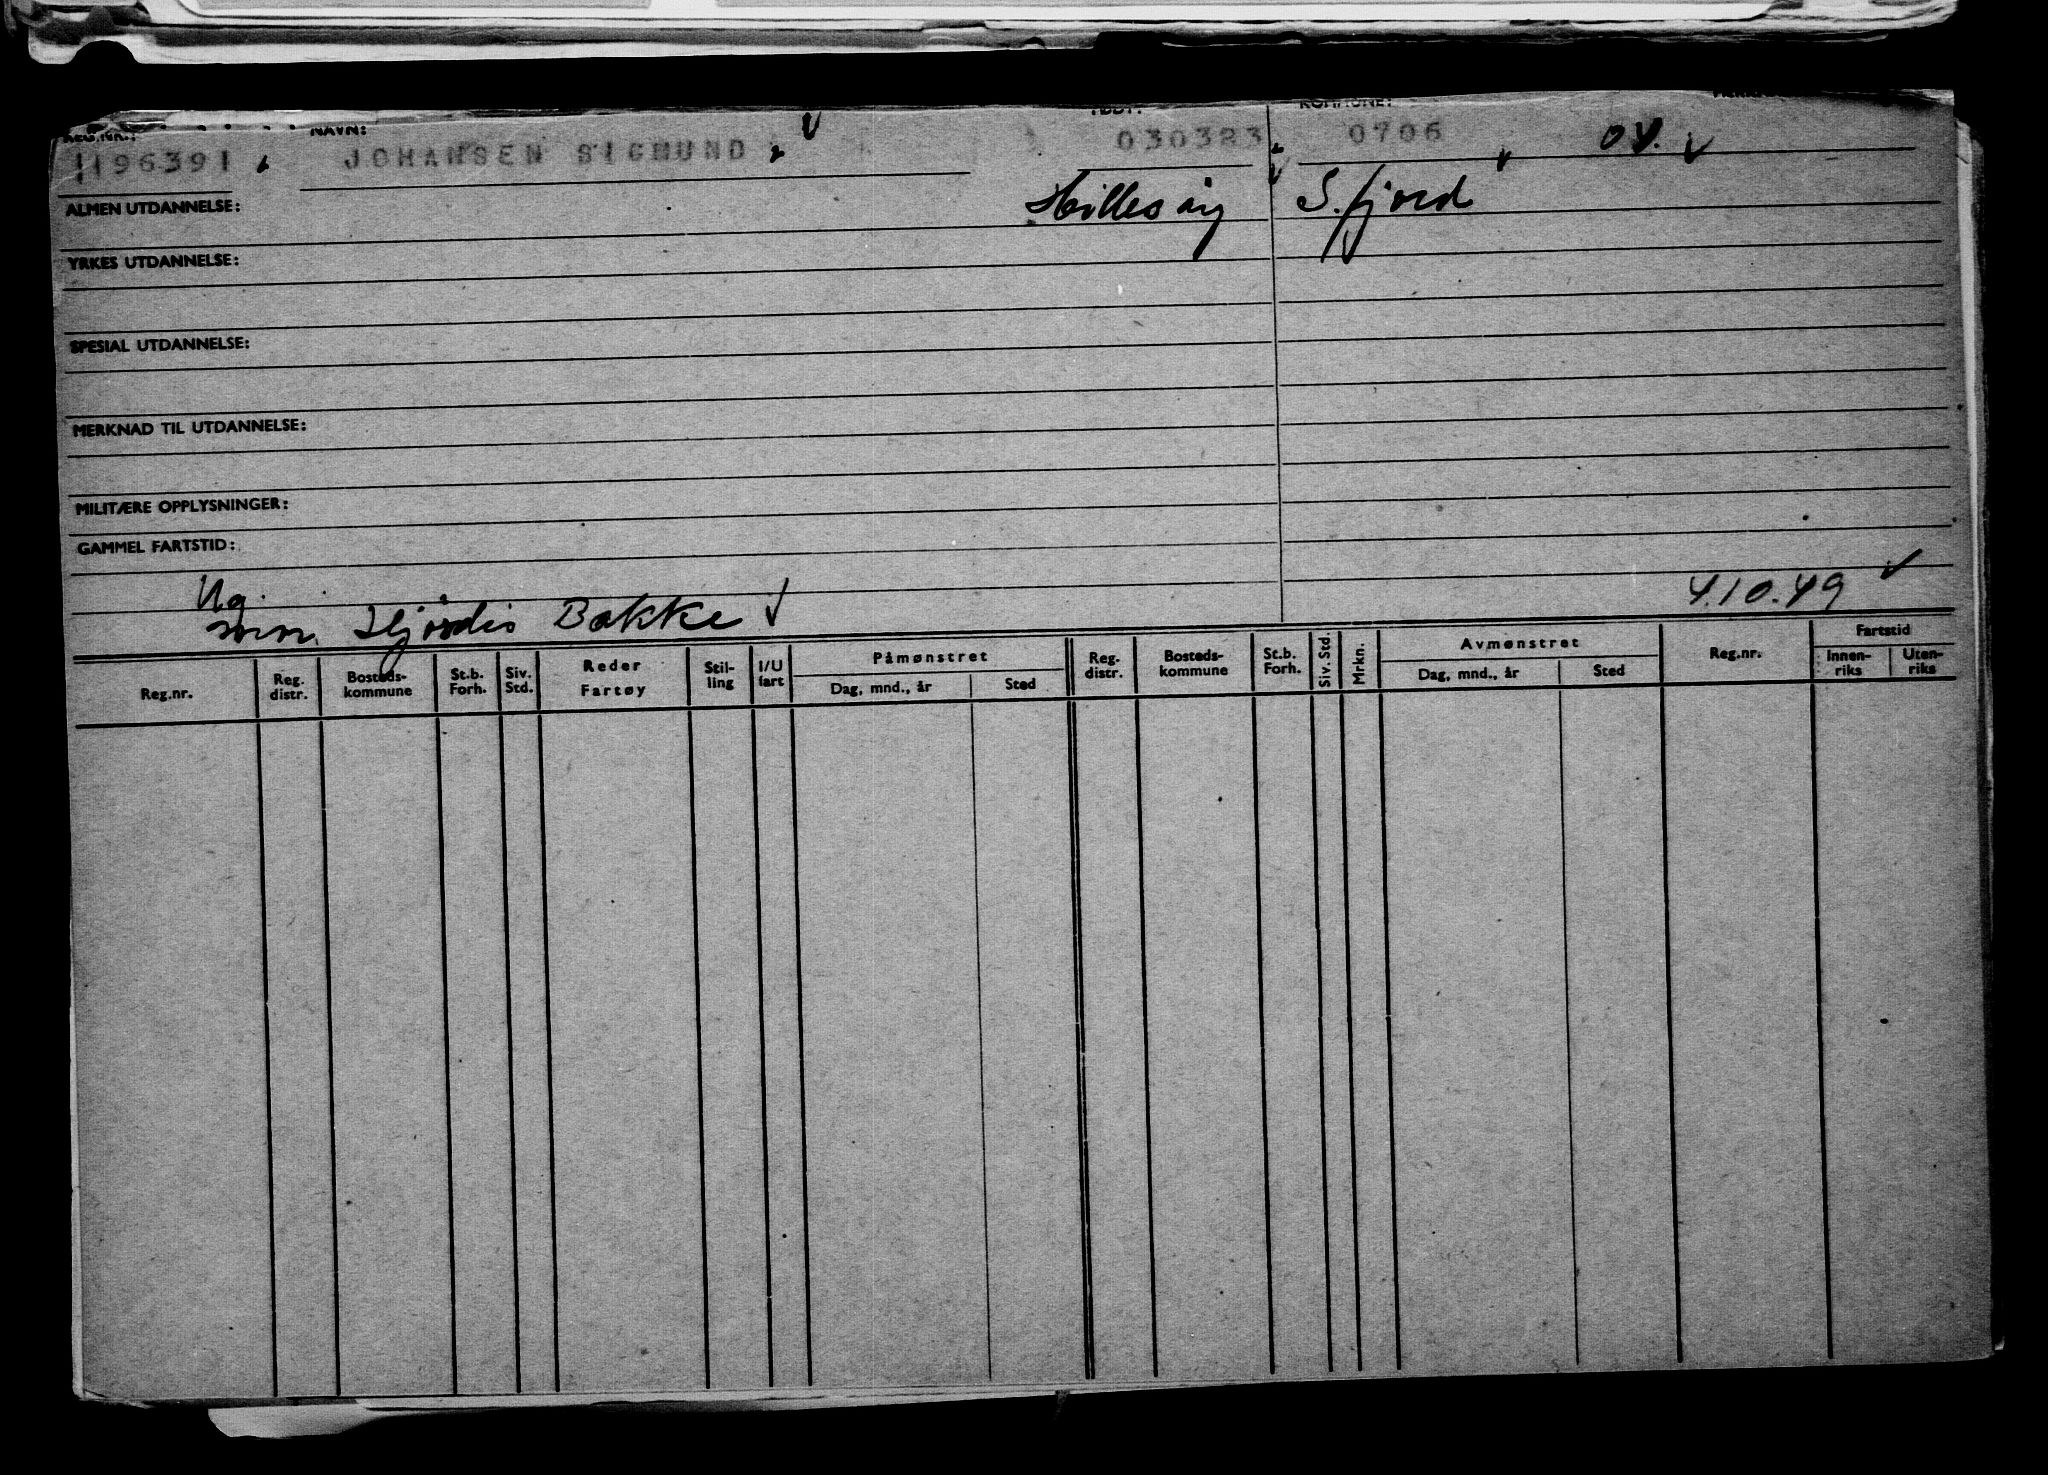 REG.NR.: NAVN: FØDT: KOMMUNE:
1196391 JOHANSEN SIGMUND 030323 0706 04.
ALMEN UTDANNELSE: Hillesøy S. fjord
YRKES UTDANNELSE:
SPESIAL UTDANNELSE:
MERKNAD TIL UTDANNELSE:
MILITÆRE OPPLYSNINGER:
GAMMEL FARTSTID:
Ug. 4.10.49
Hjørdis Bakke
Reg.nr. Reg. distr. Bosteds-kommune St.b. Forh. Siv. Std. Reder Fartøy Stil-ling I/U fart Påmønstret Dag, mnd., år Sted Reg. distr. Bosteds-kommune St.b. Forh. Siv. Std. Mrkn. Avmønstret Dag, mnd., år Sted Reg.nr. Fartstid Innen-riks Uten-riks